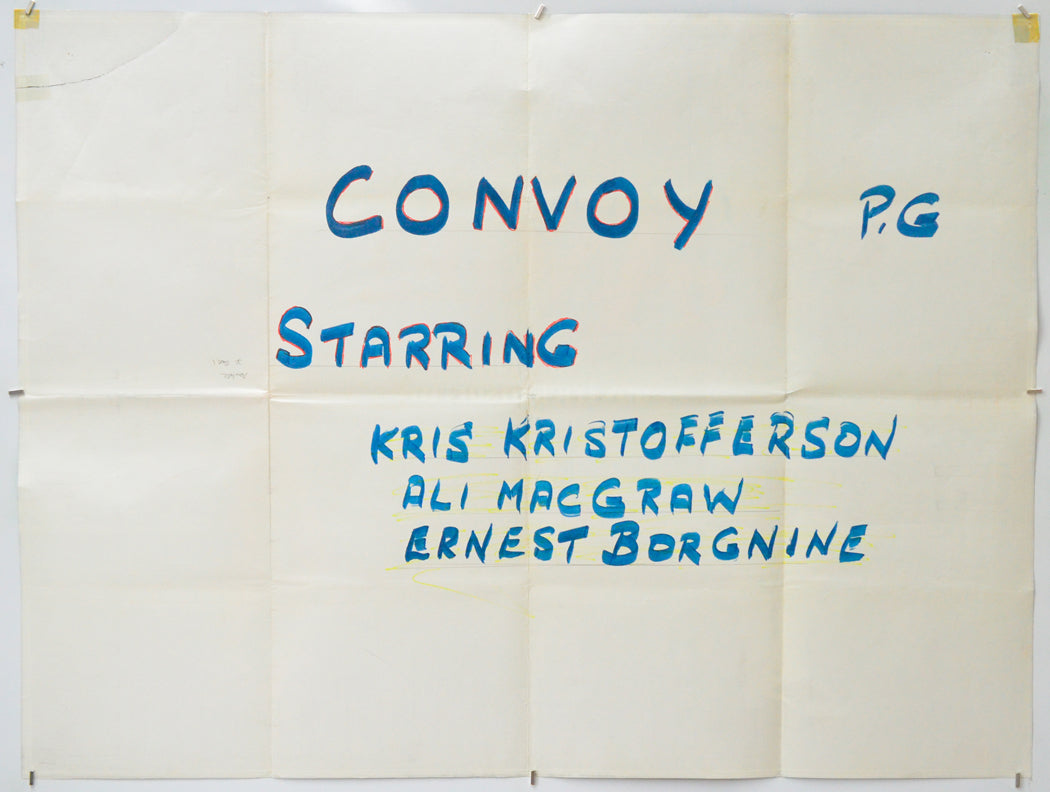 CONVOY P.G
STARRING
KRIS KRISTOFFERSON
ALI MACGRAW
ERNEST BORGNINE